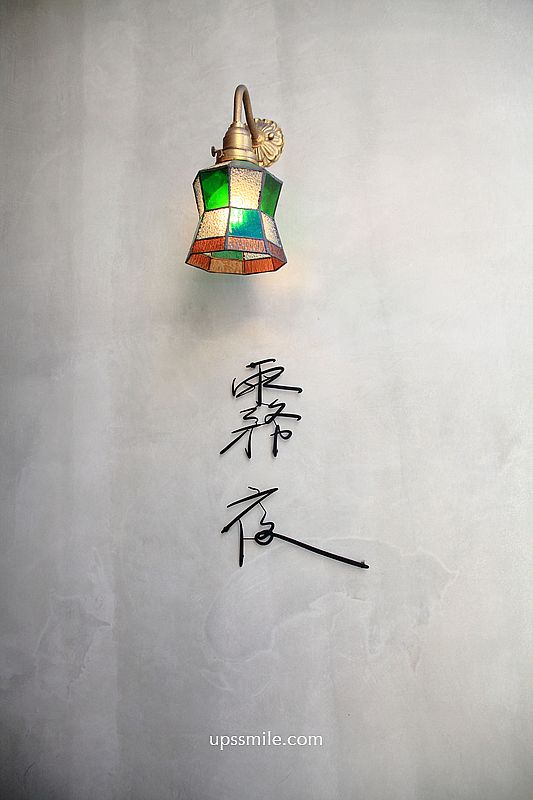 霧夜
upssmile.com